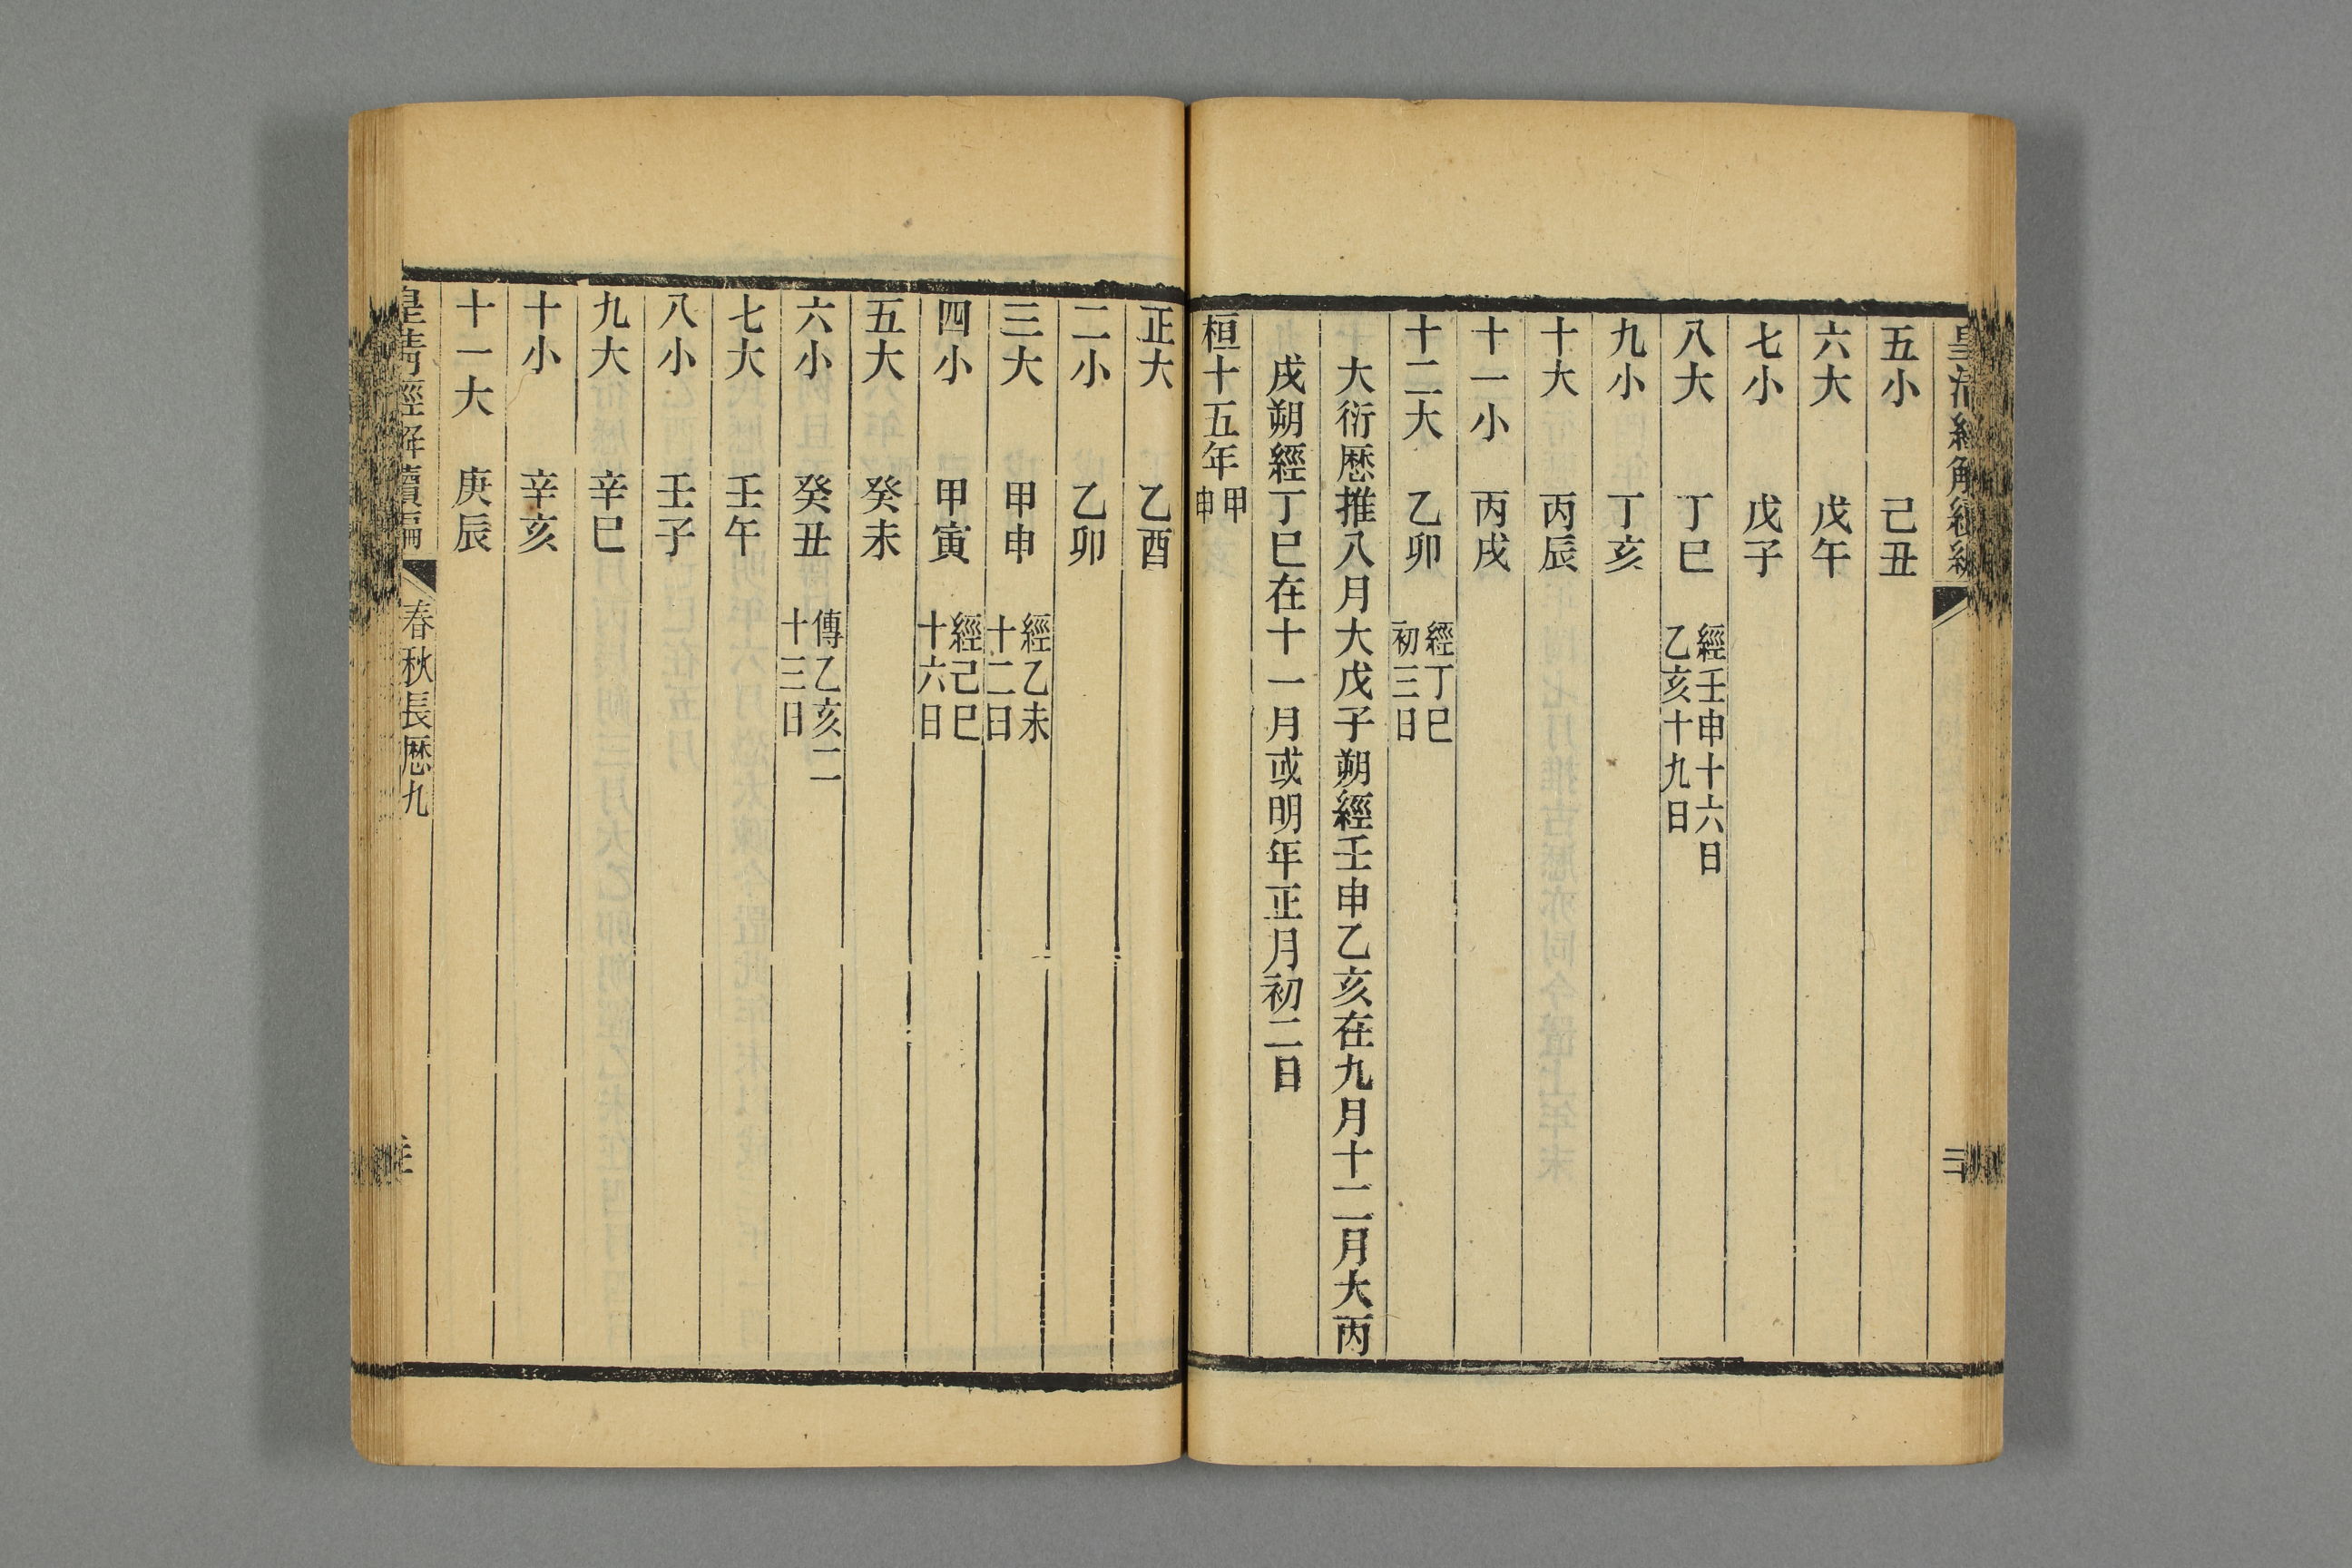 皇清經解續編
三
五小 己丑
六大 戊午
七小 戊子
八大 丁巳 經壬申十六日
乙亥十九日
九小 丁亥
十大 丙辰
十一小 丙戌
十二大 乙卯 經丁巳
初三日
大衍厯推八月大戊子朔經壬申乙亥在九月十二月大丙
戌朔經丁巳在十一月或明年正月初二日
桓十五年 甲
申
正大 乙酉
二小 乙卯
三大 甲申 經乙未
十二日
四小 甲寅 經己巳
十六日
五大 癸未
六小 癸丑 傳乙亥二
十三日
七大 壬午
八小 壬子
九大 辛巳
十小 辛亥
十一大 庚辰
皇清經解續編 春秋長厯九